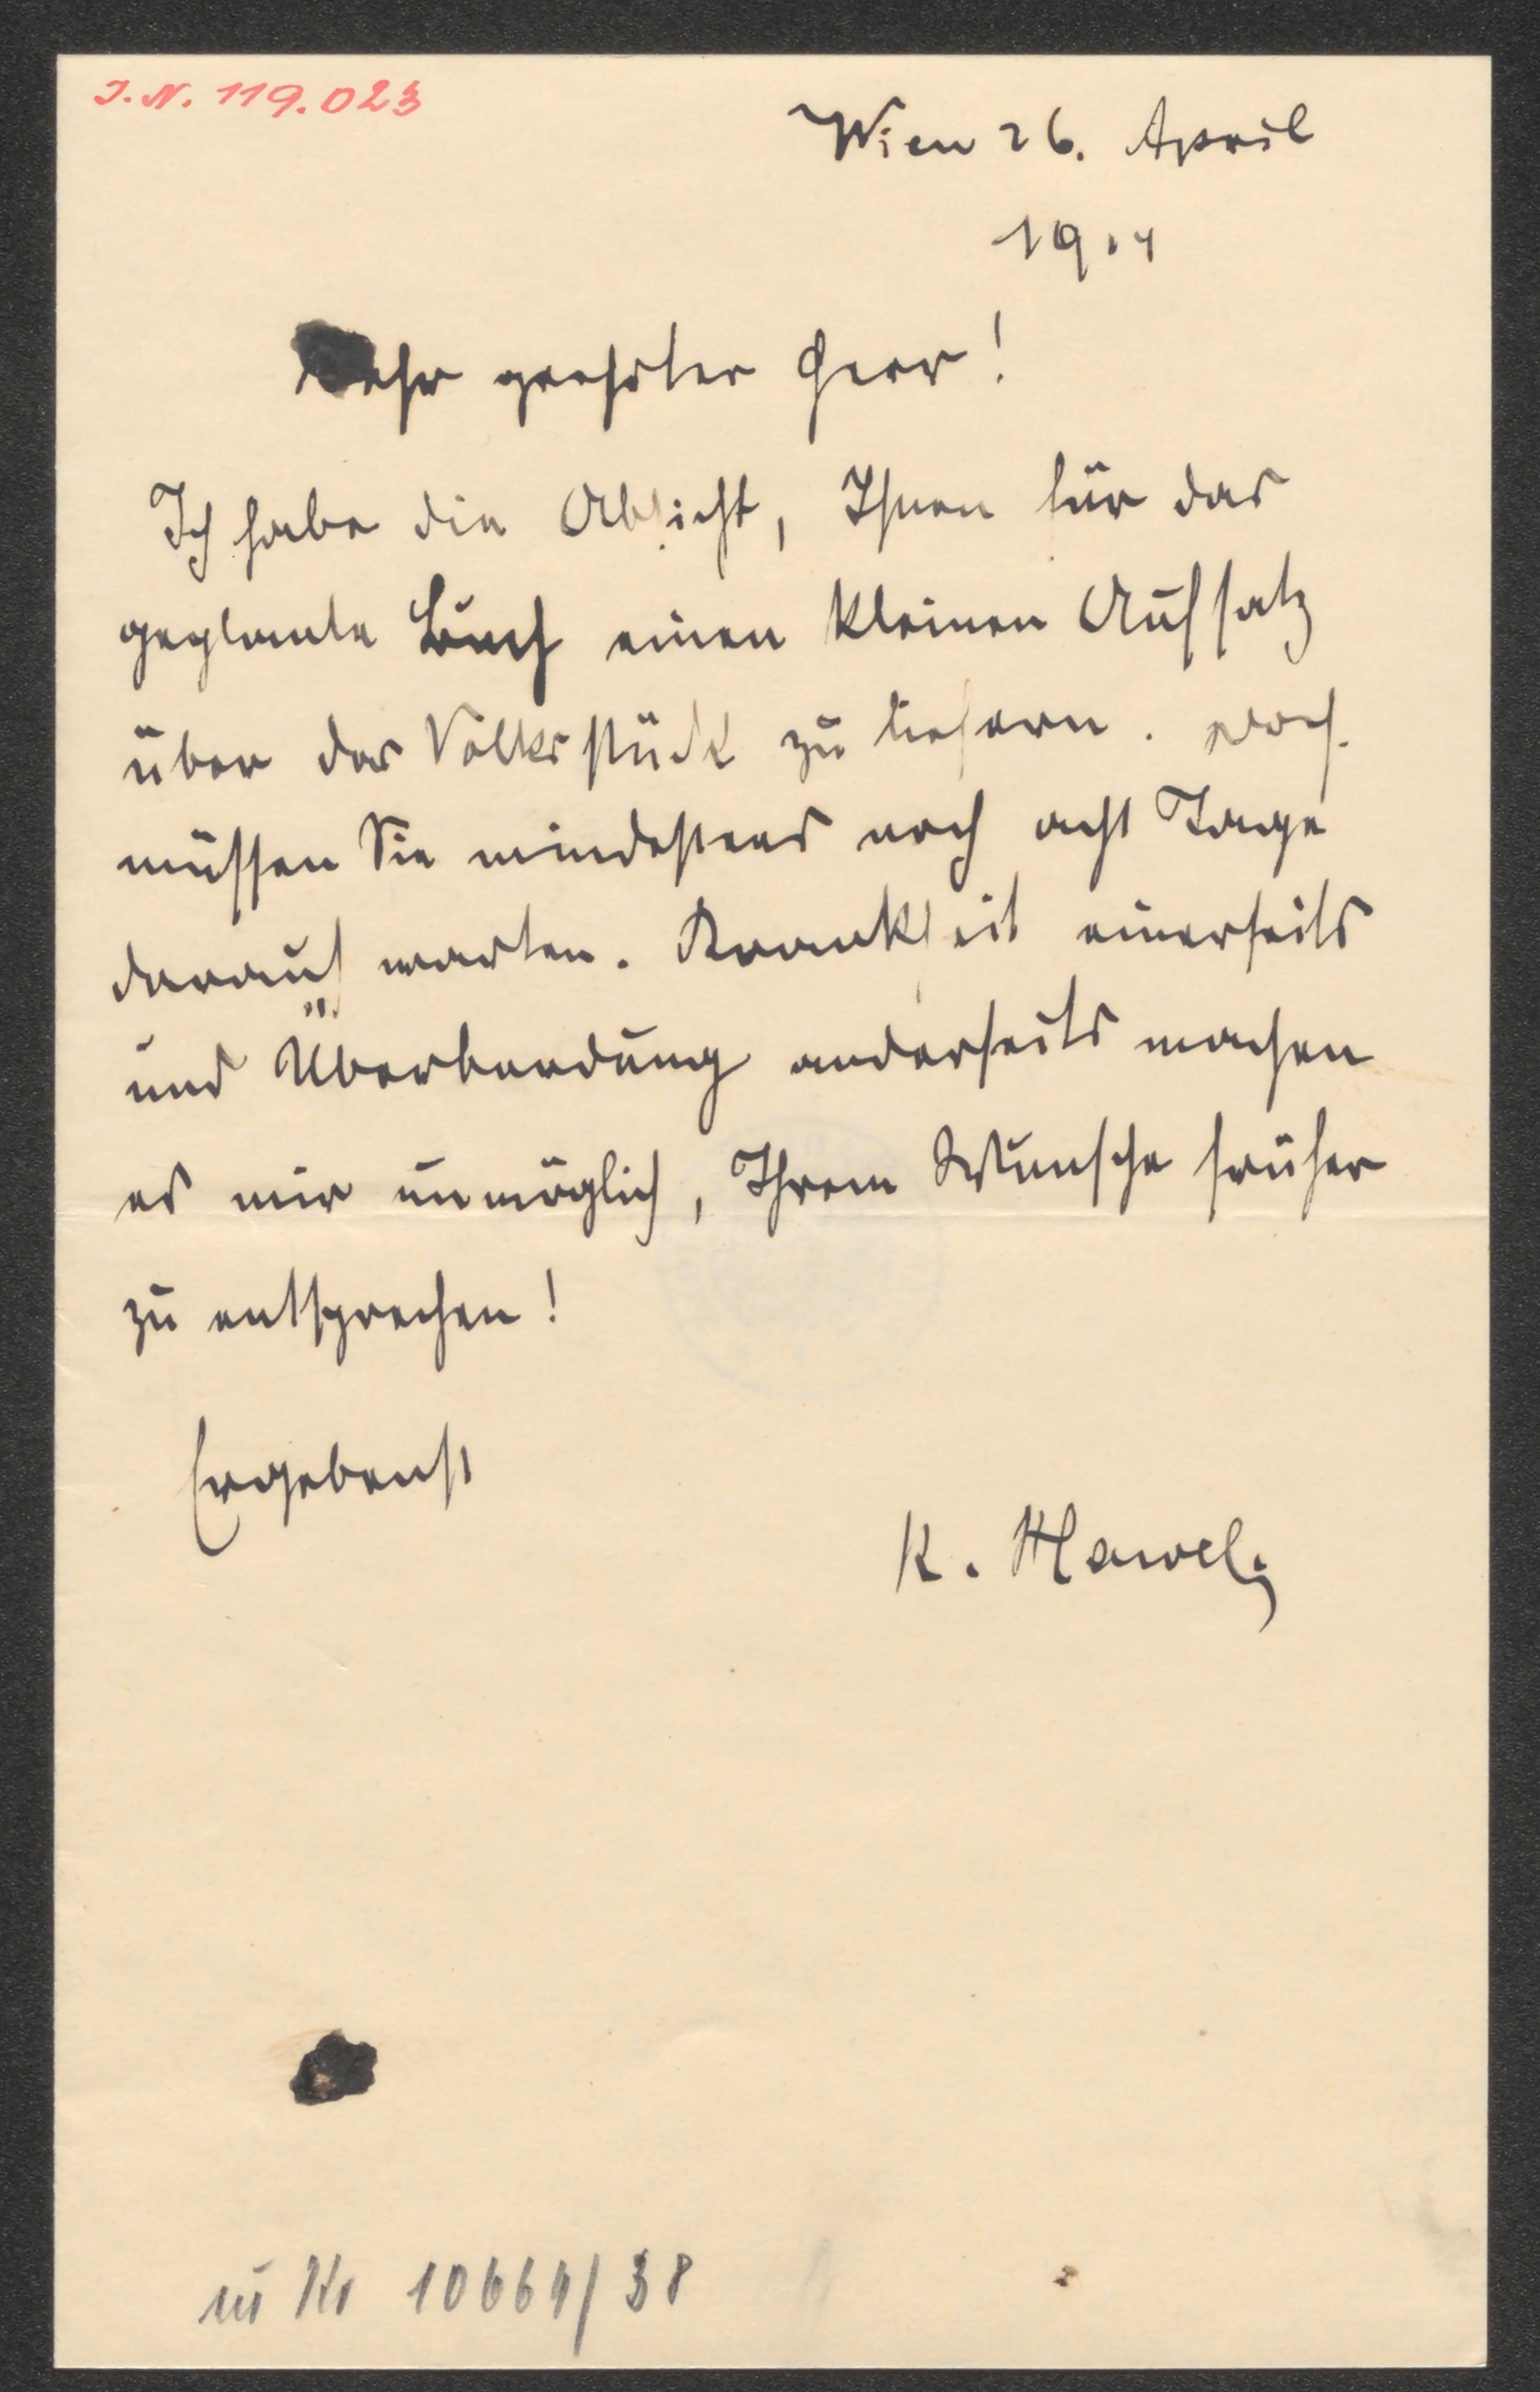 J. N. 119.023
Wien 26. April
1914
Sehr geehrter Herr!
Ich habe die Absicht, Ihnen für das
geplante Buch einen kleinen Aufsatz
über das Volksstück zu liefern. Doch
müssen Sie mindestens noch acht Tage
darauf warten. Krankheit einerseits
und Überbürdung anderseits machen
es mir unmöglich, Ihrem Wunsche früher
zu entsprechen!
Ergebenst
K. Hawel
10664/38